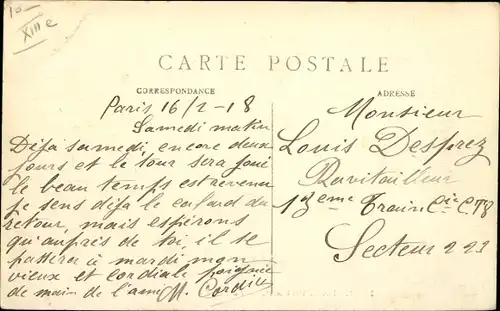 10
XIII e
CARTE POSTALE
CORRESPONDANCE
ADRESSE
Paris 16/2-18
Samedi matin
Déjà samedi, encore deux
jours et le tour sera joué
le beau temps est revenu
je sens déjà le cafard du
retour, mais espérons
qu'auprès de toi, il se
à mardi mon
vieux et cordiale poignée
de main de l'ami M.
Monsieur
Louis Desprez
Ravitailleur
Train Cie
Secteur 223